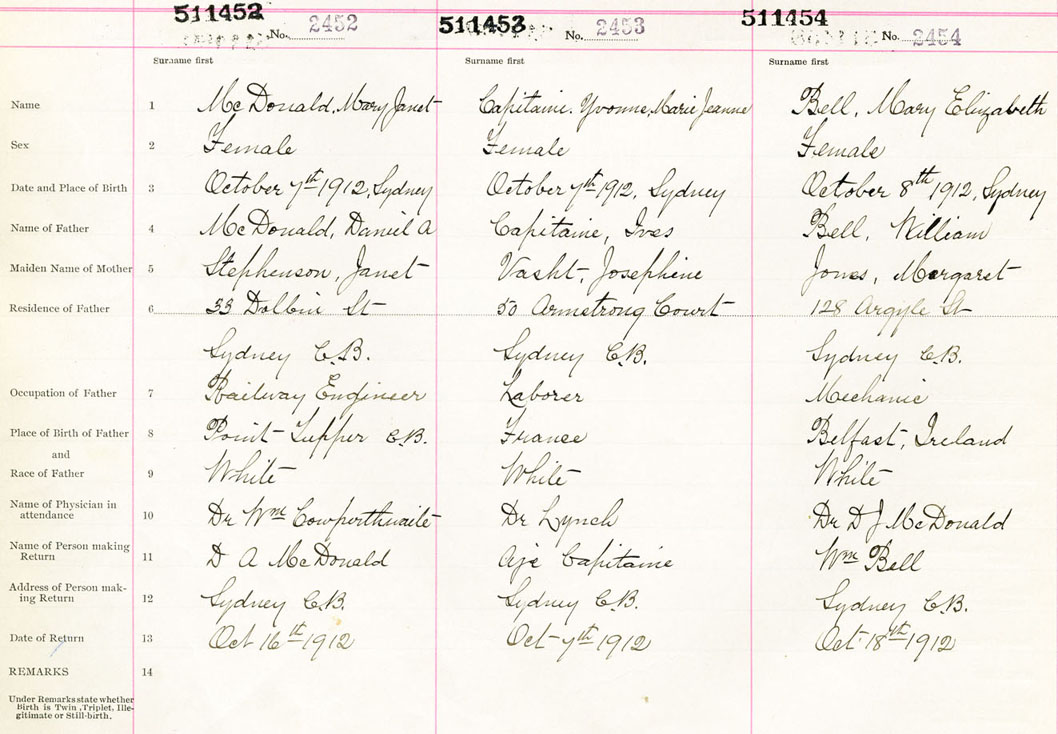 511452 511453 511454
No. 2452 No. 2453 No. 2454
Surname first Surname first Surname first
Name 1 McDonald, Mary Janet Capitaine. Yvonne, Marie Jeanne Bell, Mary Elizabeth
Sex 2 Female Female Female
Date and Place of Birth 3 October 7th 1912, Sydney October 7th 1912, Sydney October 8th 1912, Sydney
Name of Father 4 McDonald, Daniel A Capitaine, Ives Bell, William
Maiden Name of Mother 5 Stephenson, Janet Vasht, Josephine Jones, Margaret
Residence of Father 6 33 Dolbin St 50 Armstrong Court 128 Argyle St
Sydney C.B. Sydney C.B. Sydney C.B.
Occupation of Father 7 Railway Engineer Laborer Mechanic
Place of Birth of Father 8 Point Tupper C.B. France Belfast, Ireland
and
Race of Father 9 White White White
Name of Physician in
attendance 10 Dr Wm Cowperthwaite Dr Lynch Dr D J McDonald
Name of Person making
Return 11 D A McDonald Capitaine Wm Bell
Address of Person mak-
ing Return 12 Sydney C.B. Sydney C.B. Sydney C.B.
Date of Return 13 Oct 16th 1912 Oct 7th 1912 Oct 18th 1912
REMARKS 14
Under Remarks state whether
Birth is Twin, Triplet, Ille-
gitimate or Still-birth.